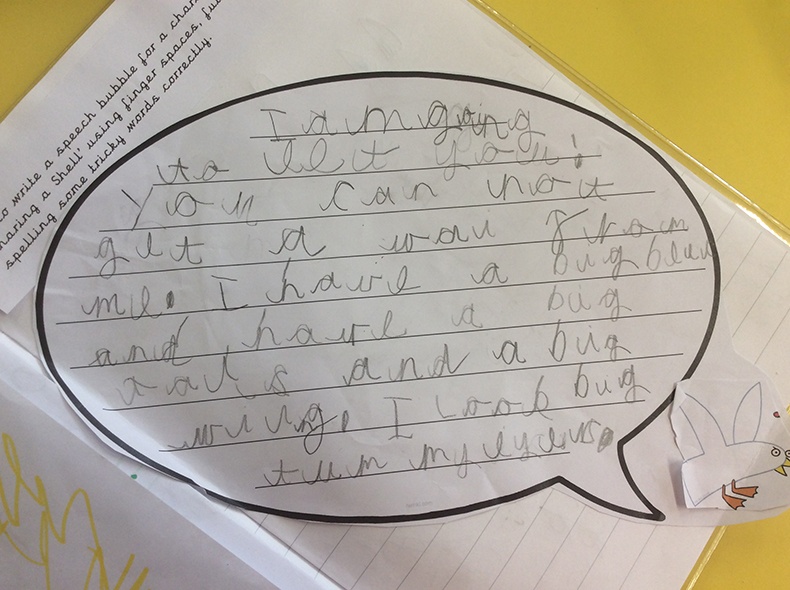 to write a speech bubble for a char
haring a Shell' using finger spaces, fu
spelling some tricky words correctly.
I am going
to eet you!
You can not
get a wai from
me. I have a big
and have a big
and a big
wing. I look big
my